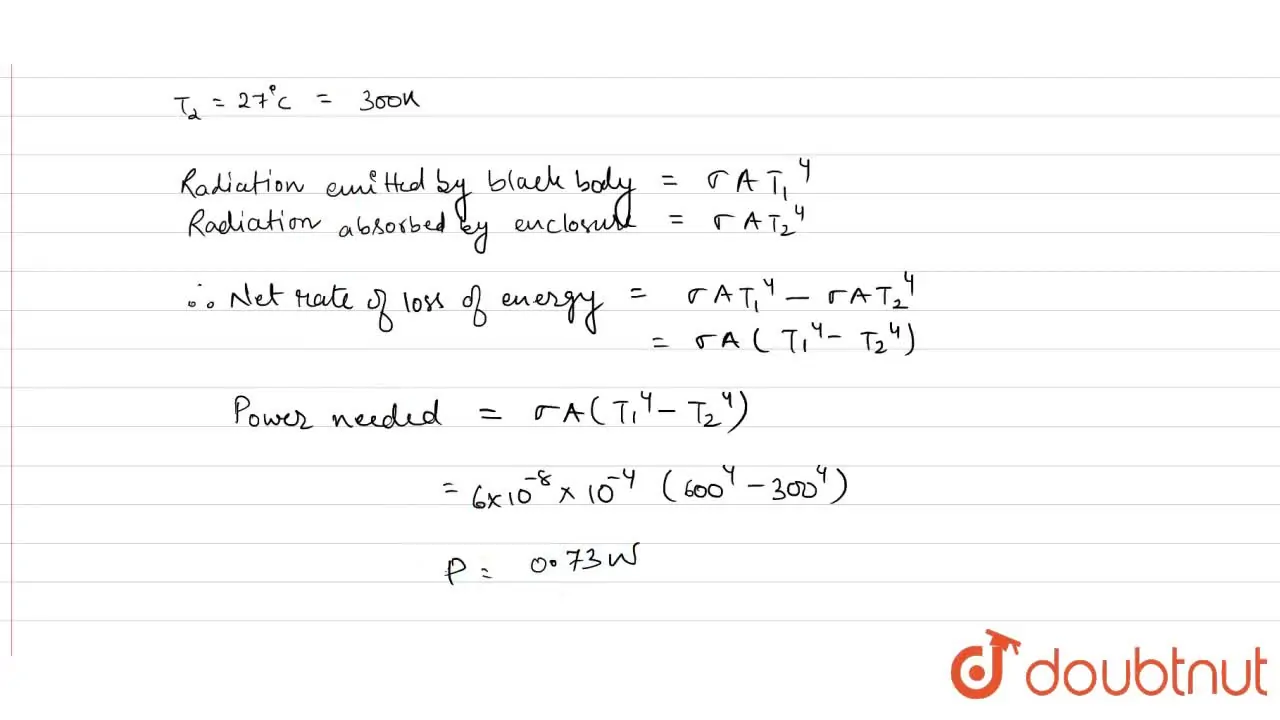 T₂ = 27°C = 300K
Radiation emitted by black body = σ A T₁⁴
Radiation absorbed by enclosure = σ A T₂⁴
∴ Net rate of loss of energy = σ A T₁⁴ – σ A T₂⁴
= σ A ( T₁⁴ – T₂⁴ )
Power needed = σ A ( T₁⁴ – T₂⁴ )
= 6 × 10⁻⁸ × 10⁻⁴ ( 600⁴ – 300⁴ )
P = 0.73 W
doubtnut